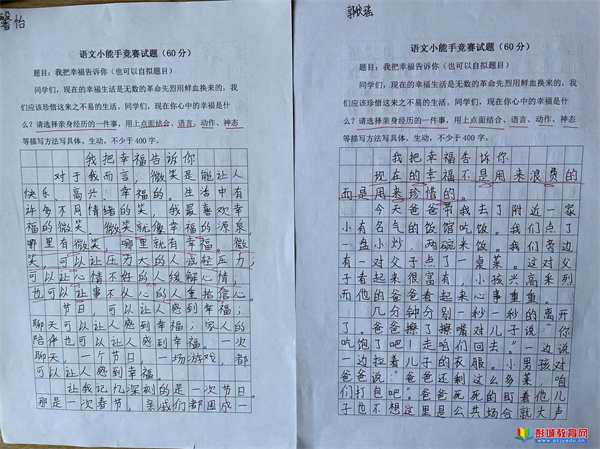 馨怡
语文小能手竞赛试题（60分）
题目：我把幸福告诉你（也可以自拟题目）
同学们，现在的幸福生活是无数的革命先烈用鲜血换来的，我
们应该珍惜这来之不易的生活，同学们，现在你心中的幸福是什
么？请选择亲身经历的一件事，用上点面结合、语言、动作、神态
等描写方法写具体、生动，不少于400字。
我把幸福告诉你
对于我而言，微笑是能让人
快乐、高兴、幸福的。生活中有
许多不同情绪的笑，我最喜欢幸
福的微笑。微笑就像幸福的源泉，
哪里有微笑，哪里就有幸福。微
笑，可以让压力大的人减轻压力；
可以让心情不好的人缓解心情，
也可以让事不从心的人重拾信心。
节日，可以让人感到幸福；
聊天可以让人感到幸福；家人的
陪伴也可以让人感到幸福。一次
聊天，一个节日，一场游戏，都
可以让人感到幸福。
让我记忆深刻的是一次节日。
那是一次春节，亲戚们都围成一
郭欣瑶
语文小能手竞赛试题（60分）
题目：我把幸福告诉你（也可以自拟题目）
同学们，现在的幸福生活是无数的革命先烈用鲜血换来的，我
们应该珍惜这来之不易的生活，同学们，现在你心中的幸福是什
么？请选择亲身经历的一件事，用上点面结合、语言、动作、神态
等描写方法写具体、生动，不少于400字。
我把幸福告诉你
现在的幸福不是用来浪费的
而是用来珍惜的。
今天爸爸带我去了附近一家
小有名气的饭馆吃饭。我们点了
一盘小炒，两碗米饭。我们旁边
有一对父子点了一桌菜。这对父
子看起来很富有，小孩兴高采列
而他的爸爸看起来心事重重。
几分钟分别一秒一秒的离开
了。爸爸擦了擦嘴对儿子说“你
吃饱了吧！走咱们回去。”一边说
一边拉着儿子的衣服。小男孩对
爸爸说“爸爸还剩这么多菜，咱
们打包吧。爸爸死死的盯着他儿
子也不想这里是公共场合就大声
彭城教育网
www.pcjyedu.cn